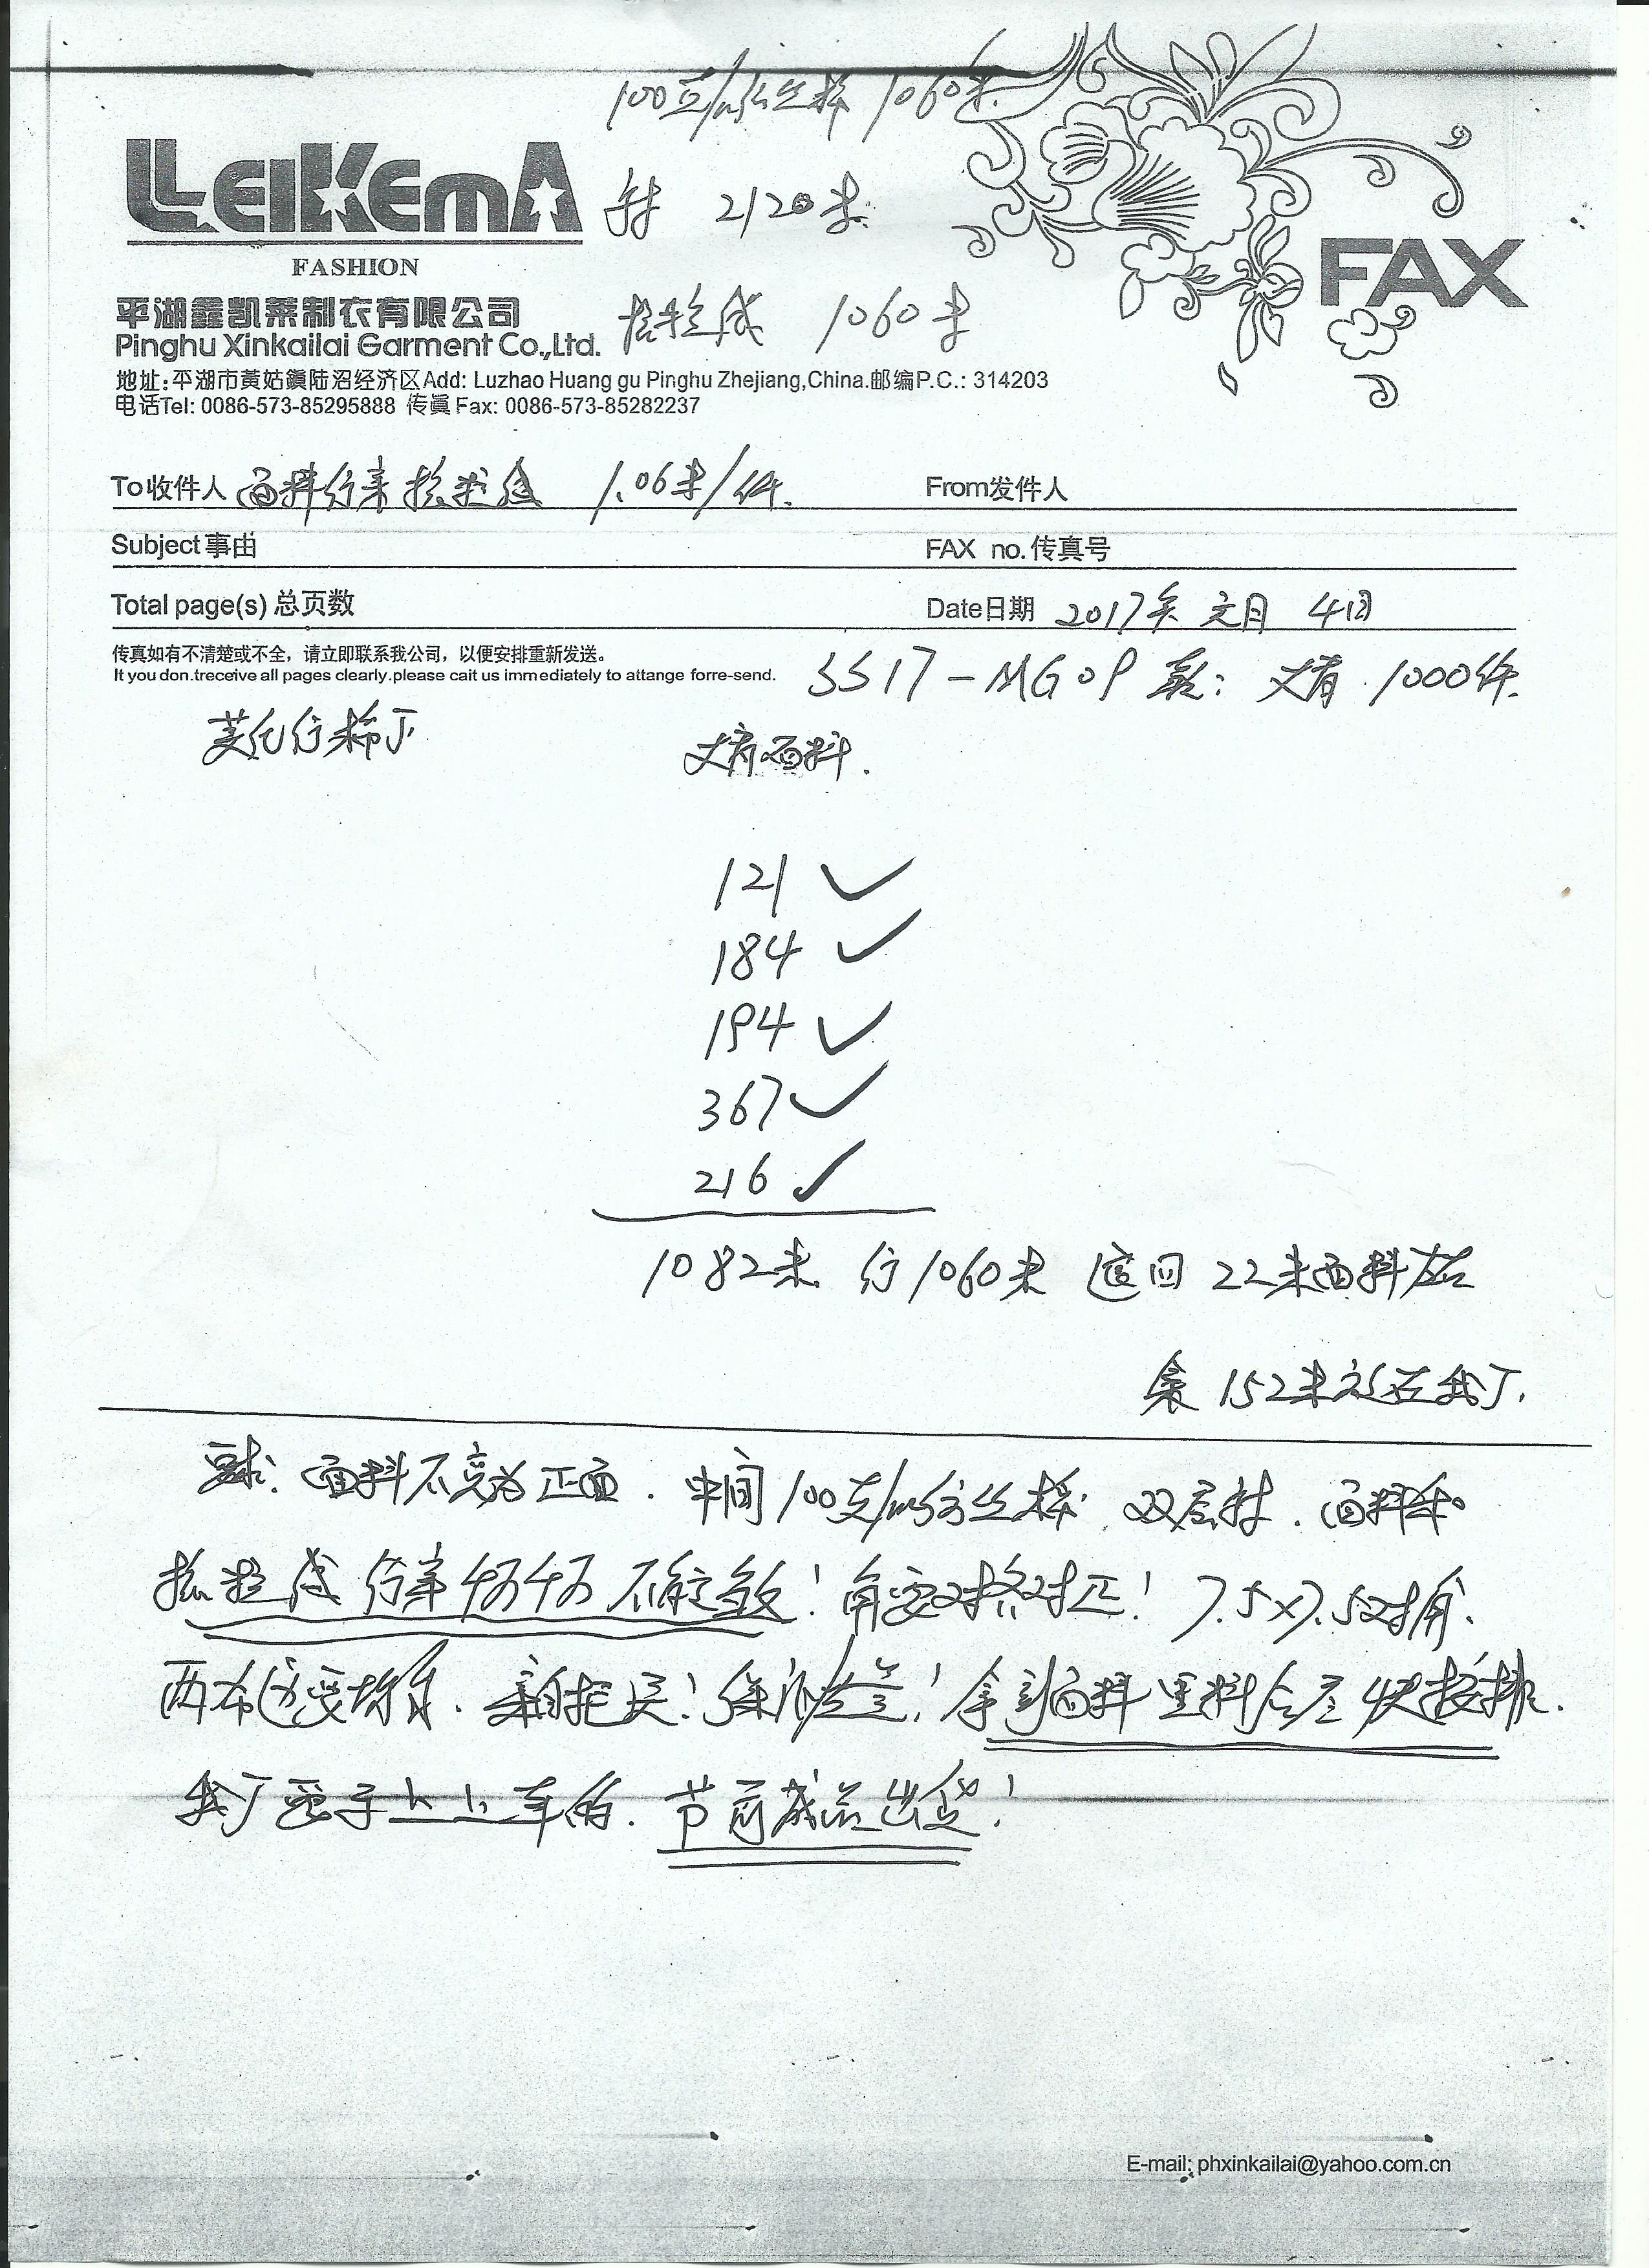 100克/m²丝棉 1060米.
LEIKEmA
衬 2120米.
FASHION
FAX
平湖鑫凯莱制衣有限公司
摇粒绒 1060米
Pinghu Xinkailai Garment Co.,Ltd.
地址:平湖市黄姑鎮陆沼经济区Add: Luzhao Huang gu Pinghu Zhejiang,China.邮编P.C.: 314203
电话Tel: 0086-573-85295888 传真 Fax: 0086-573-85282237
To收件人 面料绗来摇粒绒 1.06米/件. From发件人
Subject 事由 FAX no.传真号
Total page(s) 总页数 Date日期 2017年元月4日
传真如有不清楚或不全，请立即联系我公司，以便安排重新发送。
It you don.treceive all pages clearly.please cait us immediately to attange forre-send.
SS17-MG09 款: 丈青 1000件.
绗棉厂
丈青面料.
121 ✓
184 ✓
194 ✓
367 ✓
216 ✓
1082米 绗1060米 返回 22米面料左右
余 152米放在我厂.
要求: 面料不变为正面. 中间100克/m²丝棉. 双层衬. 面料和
摇粒绒 绗来 切切 不能起皱! 角要对齐对正! 7.5×7.5对角.
两布边要均匀. ! ! 拿到面料里料后尽快安排.
我厂要手上上车的. 节前成品出货!
E-mail: phxinkailai@yahoo.com.cn